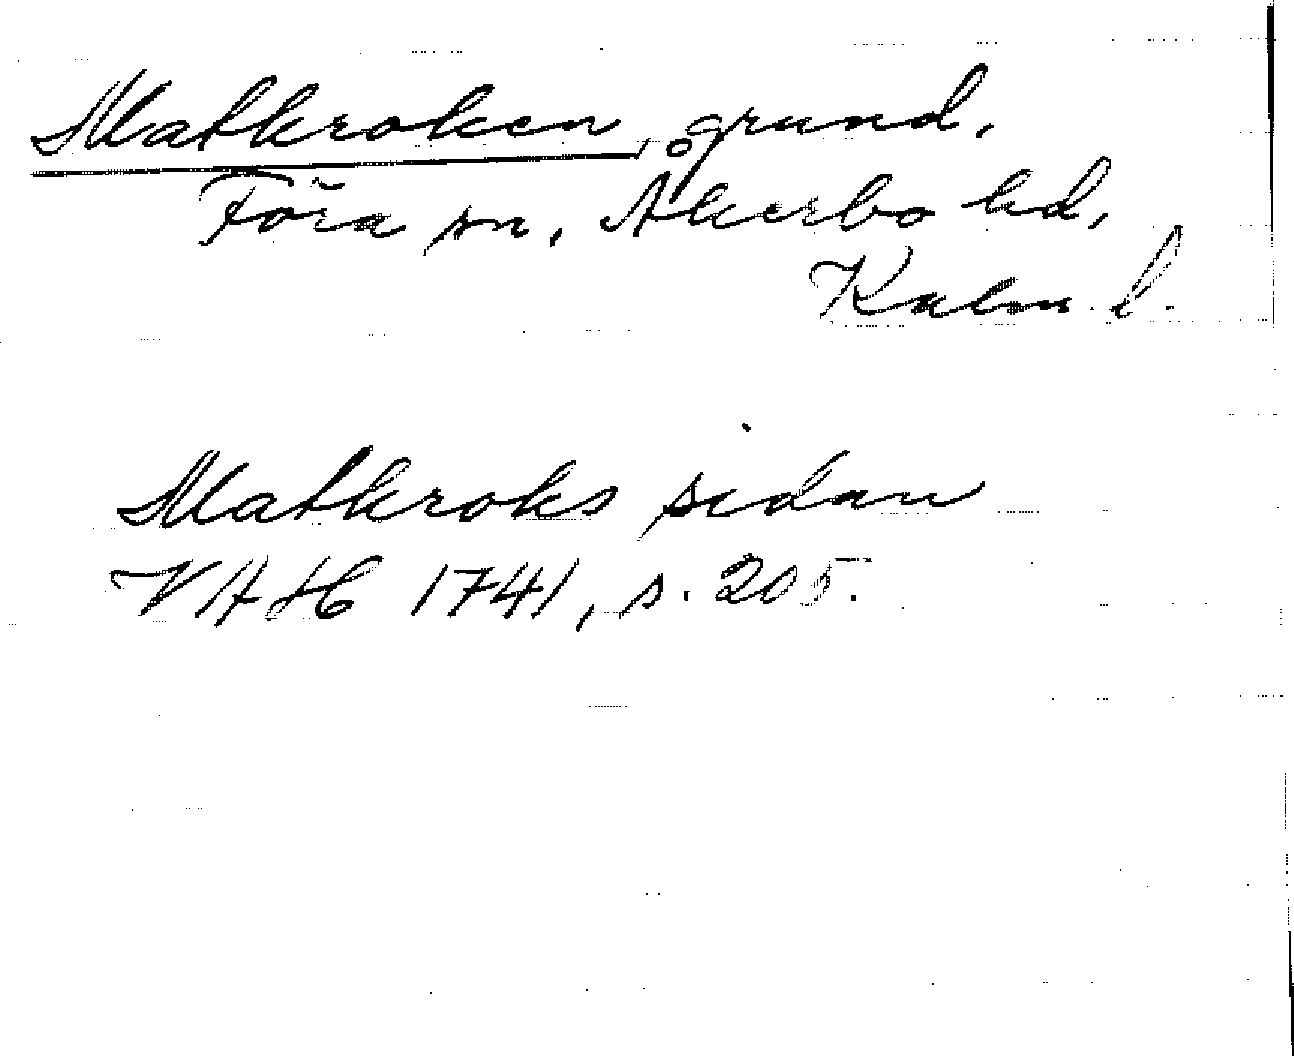 Matkroken, grund,
Föra sn, Åkerbo hd,
Kalm. l.
Matkroks sidan
VAH 1741, s. 205.